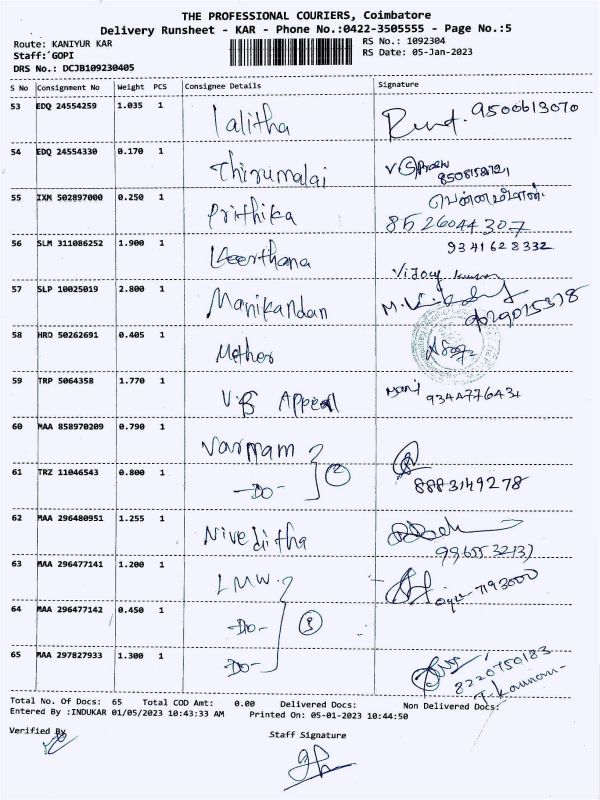 THE PROFESSIONAL COURIERS, Coimbatore
Delivery Runsheet - KAR - Phone No.:0422-3505555 - Page No.:5
Route: KANIYUR KAR
RS No.: 1092304
Staff: GOPI
RS Date: 05-Jan-2023
DRS No.: DCJB109230405
S No Consignment No Weight PCS Consignee Details Signature
53 EDQ 24554259 1.035 1 lalitha 9500613070
54 EDQ 24554330 0.170 1 Thirumalai
55 IXM 502897000 0.250 1 Prithika
8526044307
56 SLM 311086252 1.900 1 Keerthana 9341628332
Vijay kumar
57 SLP 10025019 2.800 1 Manikandan
58 HRO 50262691 0.405 1 Mother
59 TRP 5064358 1.770 1 V.B Apperal Mani
9344776431
60 MAA 858970209 0.790 1 Varmam
61 TRZ 11046543 0.800 1 -Do- 2
8883149278
62 MAA 296480951 1.255 1 Niveditha
63 MAA 296477141 1.200 1 LMW
64 MAA 296477142 0.450 1 -Do- 3
65 MAA 297827933 1.300 1 -Do-
8220750183
Total No. Of Docs: 65 Total COD Amt: 0.00 Delivered Docs: Non Delivered Docs:
Entered By :INDUKAR 01/05/2023 10:43:33 AM Printed On: 05-01-2023 10:44:50
Verified By
Staff Signature